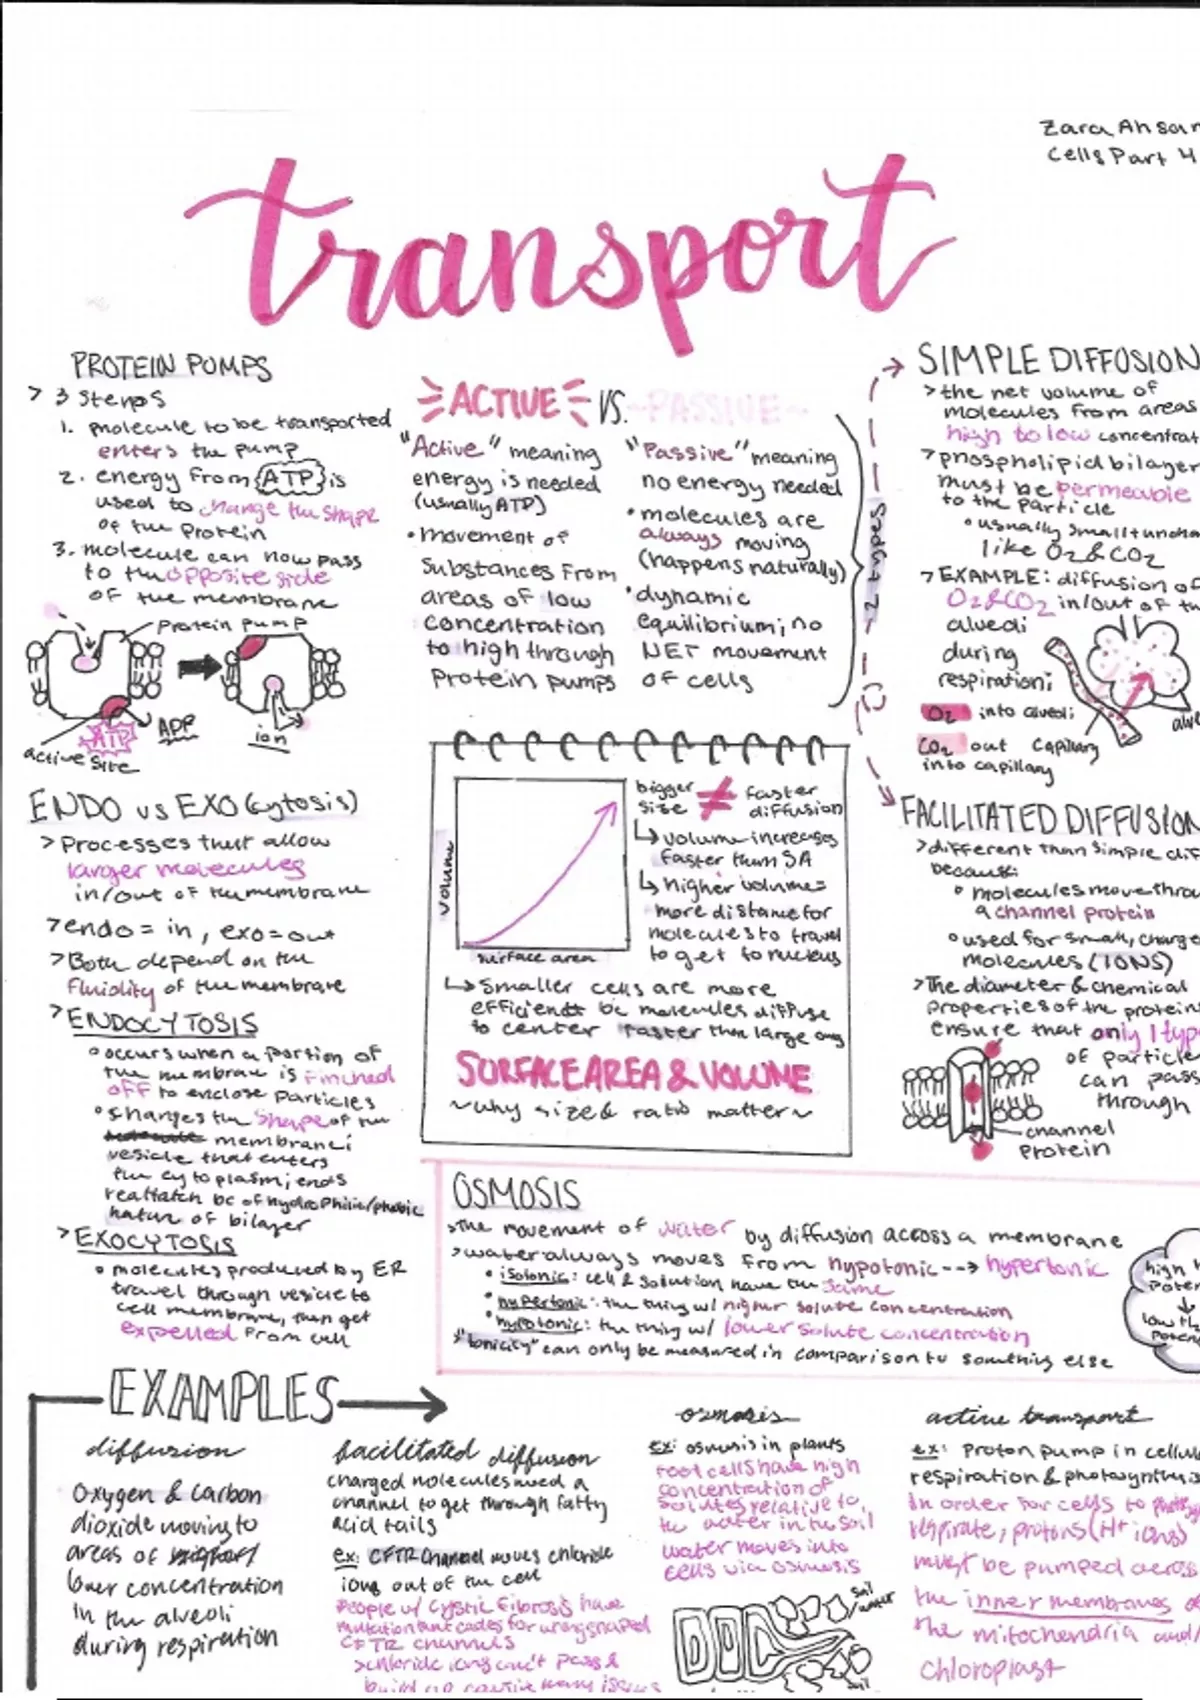 Zara Ahsan
Cells Part 4
transport
PROTEIN PUMPS
> 3 Steps
1. molecule to be transported
enters the pump
2. energy from ATP is
used to change the shape
of the protein
3. molecule can now pass
to the opposite side
of the membrane
protein pump
ATP
ADP
active site
ion
ENDO vs EXO (cytosis)
> Processes that allow
larger molecules
in/out of the membrane
> endo = in, exo = out
> Both depend on the
fluidity of the membrane
> ENDOCYTOSIS
° occurs when a portion of
the membrane is pinched
off to enclose particles
° changes the shape of the
membrane;
vesicle that enters
the cytoplasm; ends
reattatch bc of hydrophilic/phobic
nature of bilayer
> EXOCYTOSIS
° molecules produced by ER
travel through vesicle to
cell membrane, then get
expelled from cell
ACTIVE VS. PASSIVE
"Active" meaning
energy is needed
(usually ATP)
• movement of
substances from
areas of low
concentration
to high through
protein pumps
"Passive" meaning
no energy needed
• molecules are
always moving
(happens naturally)
• dynamic
equilibrium; no
NET movement
of cells
2 types
volume
surface area
bigger size ≠ faster diffusion
↳ volume increases
faster than SA
↳ higher volume =
more distance for
molecules to travel
to get to nucleus
↳ Smaller cells are more
efficient bc molecules diffuse
to center faster than large ones
SURFACE AREA & VOLUME
~why size & ratio matter~
SIMPLE DIFFUSION
> the net volume of
molecules from areas
high to low concentrat
> phospholipid bilayer
must be permeable
to the particle
• usually small+unch
like O2 & CO2
> EXAMPLE: diffusion of
O2 & CO2 in/out of th
alveoli
during
respiration;
O2 into alveoli
CO2 out
into capillary
capillary
alve
FACILITATED DIFFUSION
> different than simple dif
because:
° molecules move throu
a channel protein
° used for small, charge
molecules (IONS)
> The diameter & chemical
properties of the protein
ensure that only 1 typ
of particle
can pass
through
channel
protein
OSMOSIS
> The movement of water by diffusion across a membrane
> water always moves from hypotonic --> hypertonic
• isotonic: cell & solution have the same
• hypertonic: the thing w/ higher solute concentration
• hypotonic: the thing w/ lower solute concentration
> "tonicity" can only be measured in comparison to something else
high H
Poten
↓
low H2
Potent
EXAMPLES
diffusion
oxygen & carbon
dioxide moving to
areas of
lower concentration
in the alveoli
during respiration
facilitated diffusion
charged molecules need a
channel to get through fatty
acid tails
ex: CFTR Channel moves chloride
ions out of the cell
People w/ Cystic Fibrosis have
mutation that codes for wrong shaped
CFTR channels
> chloride ions can't pass &
build up causing many issues
osmosis
ex: osmosis in plants
root cells have high
concentration of
solutes relative to
the water in the soil
water moves into
cells via osmosis
soil
water
soil
active transport
ex: Proton pump in cellul
respiration & photosynthesis
in order for cells to
respirate, protons (H+ ions)
must be pumped across
the inner membranes of
the mitochondria and/
chloroplast